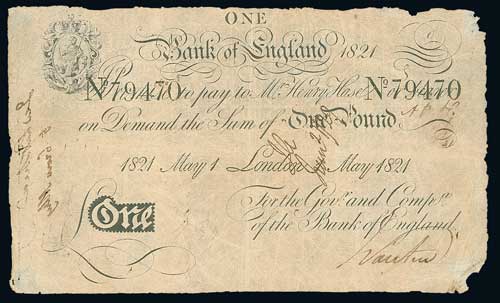 ONE
Bank of England 1821
No 79470 No 79470
I Promise to pay to Mr. Henry Hase or bearer
on Demand the Sum of One Pound
1821 May 1 London 1 May 1821
For the Govr. and Compa.
of the Bank of England.
One